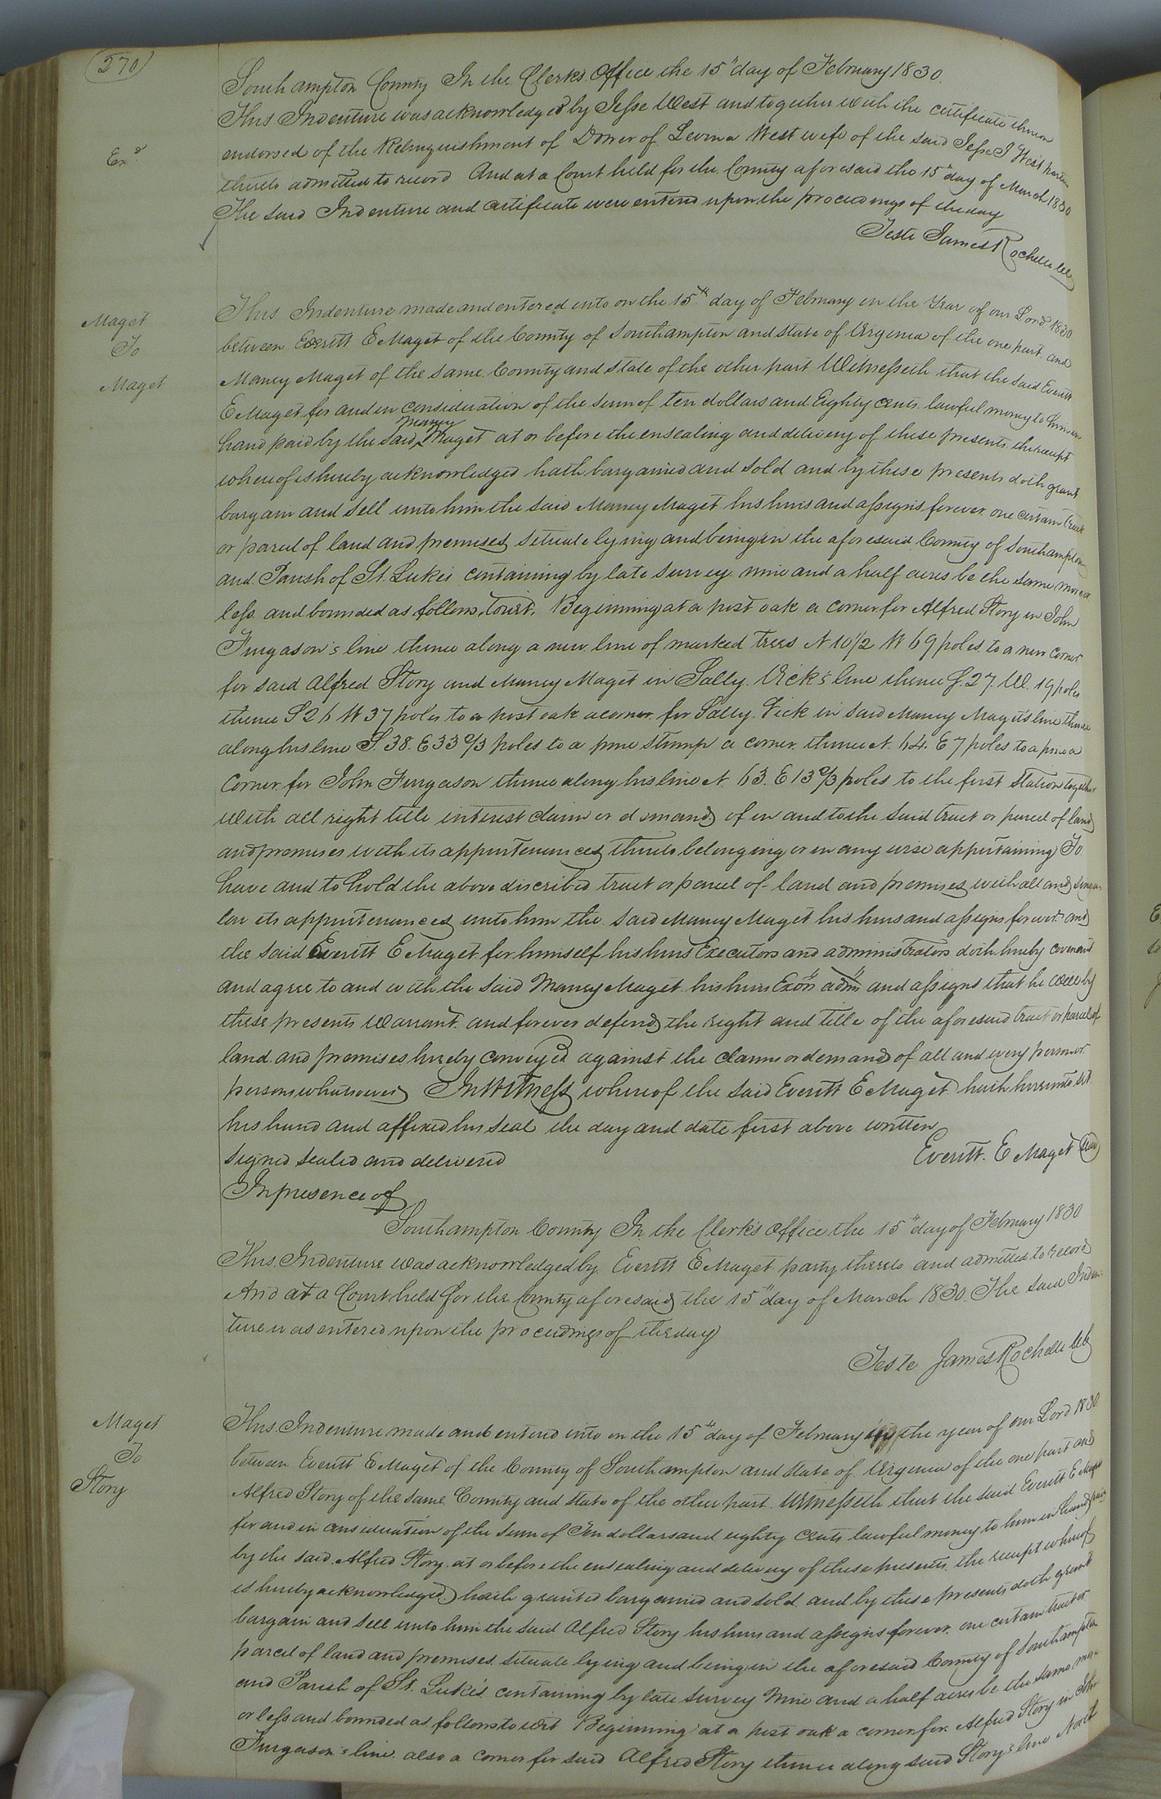 570
Southampton County In the Clerks Office the 15th day of February 1830
This Indenture was acknowledged by Jesse West and together with the certificate thereon
Exd
endorsed of the Relinquishment of Dower of Levina West wife of the said Jesse
thereto admitted to record And at a Court held for the County aforesaid the 15th day of March 1830
The said Indenture and certificate were entered upon the proceedings of the day
Teste James Rochelle clk
Maget
To
Maget
This Indenture made and entered into on the 15th day of February in the Year of our Lord 1830
between Everitt E Maget of the County of Southampton and state of Virginia of the one part and
Maney Maget of the same County and State of the other part Witnesseth that the said Everitt
E Maget for and in consideration of the sum of ten dollars and Eighty cents lawful money to him in
hand paid by the said Maney Maget at or before the ensealing and delivery of these presents the receipt
whereof is hereby acknowledged hath bargained and sold and by these presents doth grant
bargain and sell unto him the said Maney Maget his heirs and assigns forever one certain tract
or parcel of land and premises situate lying and being in the aforesaid County of Southampton
and Parish of St. Lukes containing by late survey nine and a half acres be the same more or
less and bounded as follows, towit. Beginning at a post oak a corner for Alfred Story in John
Furgason's line thence along a new line of marked trees N 10 1/2 W 69 poles to a new corner
for said Alfred Story and Maney Maget in Sally Vick's line thence S. 27 W. 19 poles
thence S 26 W 37 poles to a post oak a corner for Sally Vick in said Maney Maget's line thence
along his line S. 38. E 33 2/3 poles to a pine stump a corner thence N. 64. E 7 poles to a pine a
Corner for John Furgason thence along his line N. 63. E 13 2/3 poles to the first Station together
with all right title interest claim or demand of in and to the said tract or parcel of land
and premises with its appurtenances thereto belonging or in any wise appertaining To
have and to hold the above discribed tract or parcel of land and premises with all and singu
lar its appurtenances unto him the said Maney Maget his heirs and assigns forever and
the said Everitt E Maget for himself his heirs Executors and administrators doth hereby covenant
and agree to and with the said Maney Maget his heirs Exors adms and assigns that he will by
these presents warrant and forever defend the right and title of the aforesaid tract or parcel of
land and premises hereby conveyed against the claim or demand of all and every person or
persons whatsoever In Witness whereof the said Everitt E Maget hath hereunto set
his hand and affixed his seal the day and date first above written
signed sealed and delivered
Everitt. E Maget seal
In presence of
Southampton County In the Clerk's Office the 15th day of February 1830
This Indenture was acknowledged by Everitt E Maget party thereto and admitted to record
And at a Court held for the County aforesaid the 15th day of March 1830. The said Inden
ture was entered upon the proceedings of the day
Teste James Rochelle clk
Maget
To
Story
This Indenture made and entered into on the 15th day of February in the year of our Lord 1830
between Everitt E Maget of the County of Southampton and state of Virginia of the one part and
Alfred Story of the same County and state of the other part. Witnesseth that the said Everitt E Maget
for and in consideration of the sum of Ten dollars and eighty cents lawful money to him in hand paid
by the said Alfred Story at or before the ensealing and delivery of these presents the receipt whereof
is hereby acknowledged hath granted bargained and sold and by these presents doth grant
bargain and sell unto him the said Alfred Story his heirs and assigns forever one certain tract or
parcel of land and premises situate lying and being in the aforesaid County of Southampton
and Parish of St. Lukes containing by late survey Nine and a half acres be the same more
or less and bounded as follows to wit Beginning at a post oak a corner for Alfred Story in John
Furgason's line also a corner for said Alfred Story thence along said Story's line North